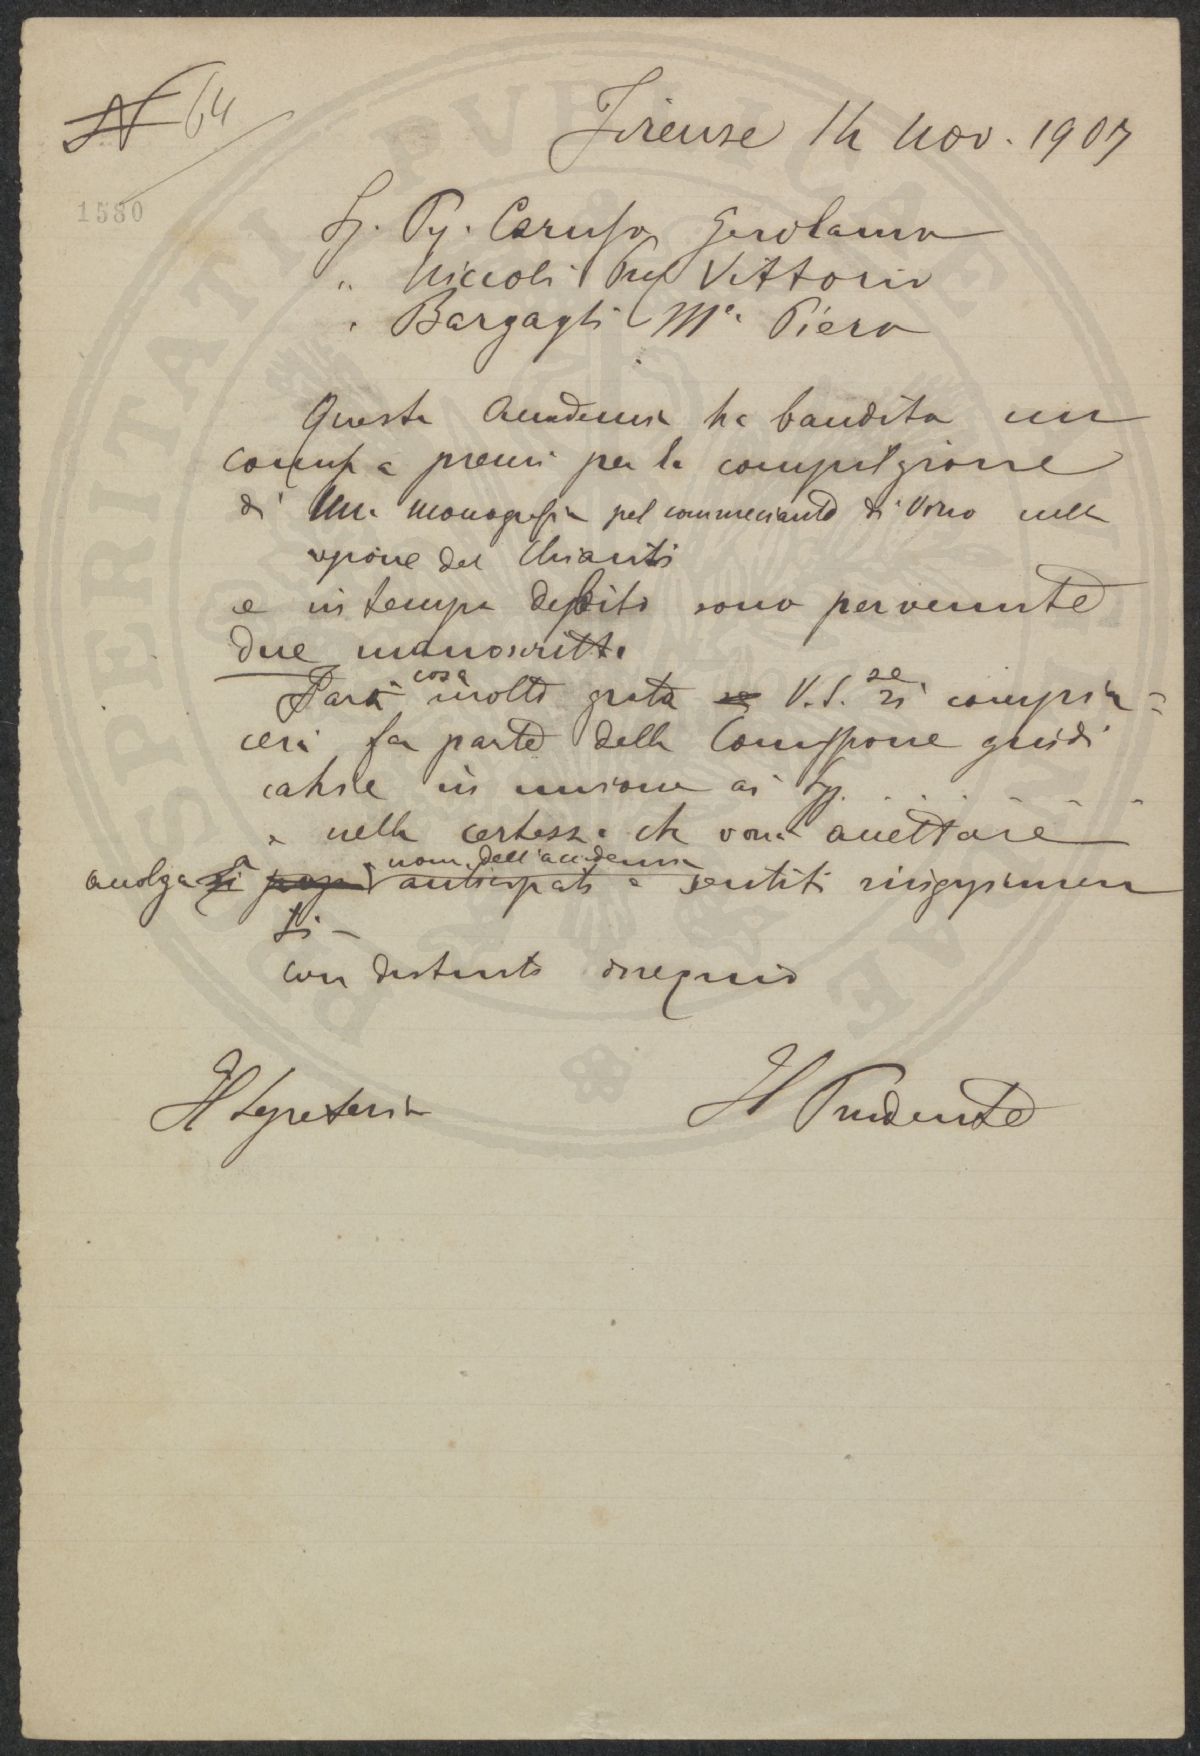 N 64
Firenze 14 Nov. 1907
1580
Sg. Pr. Caruso Gerolamo
" Niccoli Prof Vittorio
" Bargagli Me. Piero
Questa Accademia ha bandito un
concorso a premi per la compilazione
di Una monografia pel commerciante di Vino nella
regione del Chianti
e in tempo debito sono pervenute
due manoscritti
Sarà cosa molto grata se V.S. se si compia=
cerà far parte della Commissione giudi
catrice in unione ai Sigg. . . . . - -
e nella certezza che vorrà accettare
accolga a nome dell'accademia anticipati e sentiti ringraziamen
ti -
con distinto ossequio
Il Segretario
Il Presidente
PROSPERITATI PVBLICAE AVGENDAE